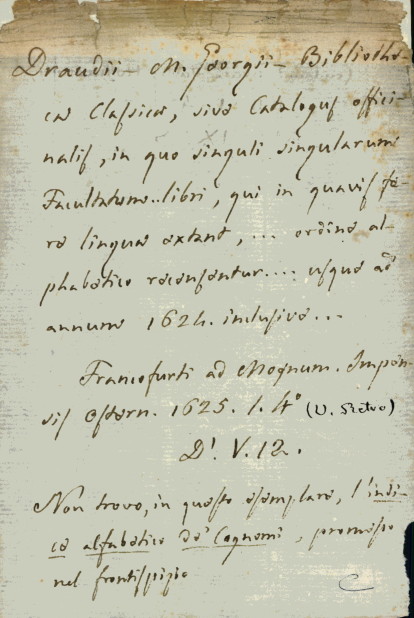 Draudii - M. Georgii - Bibliothe-
ca Classica, sive Catalogus offici-
nalis, in quo singuli singularum
Facultatum.. libri, qui in quavis fe-
re lingua extant, ... ordine al-
phabetico recensentur.... usque ad
annum 1624. inclusive...
Francofurti ad Moenum. Impen-
sis Ostern. 1625. 1. 4°
(V. Retro)
D! V. 12.
Non trovo, in questo esemplare, l'indi-
ce alfabetico de' Cognomi, promesso
nel frontispizio